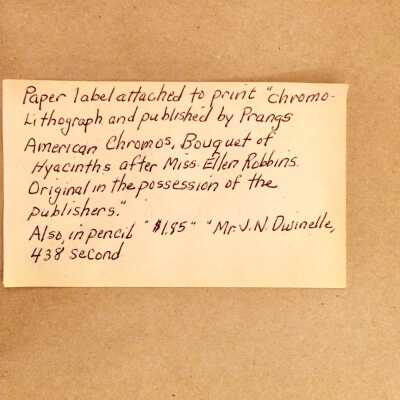 Paper label attached to print "chromo-
Lithograph and published by Prangs
American Chromos, Bouquet of
Hyacinths after Miss Ellen Robbins.
Original in the possession of the
publishers."
Also, in pencil "$1.85" "Mr. J. N. Dwinelle,
438 second